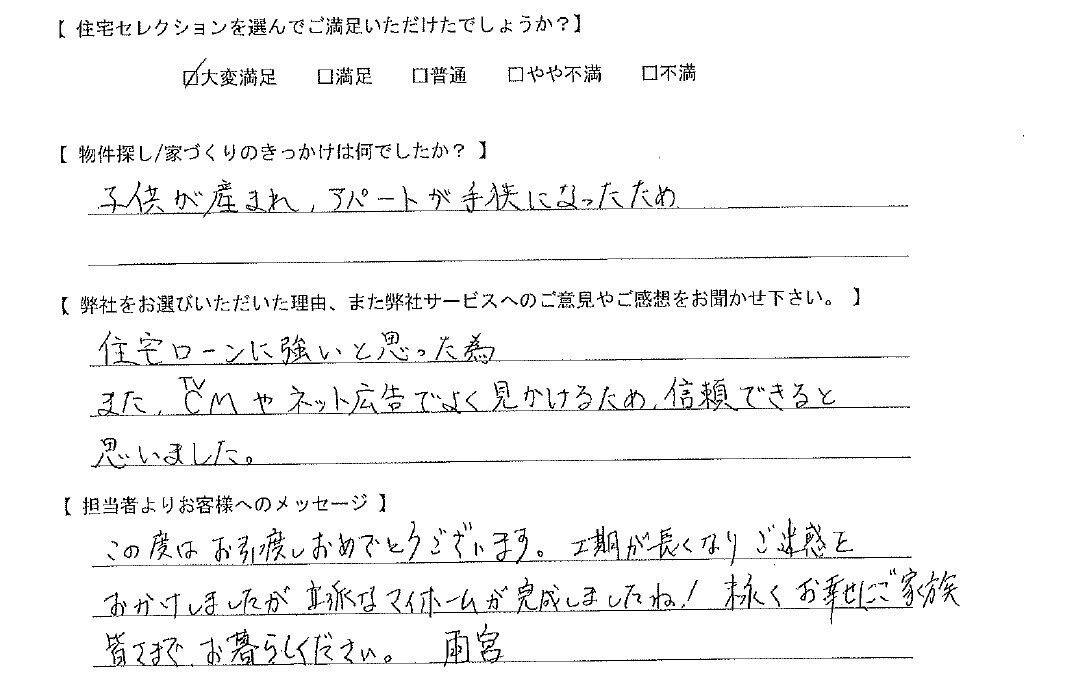 【 住宅セレクションを選んでご満足いただけたでしょうか?】
☑大変満足 □満足 □普通 □やや不満 □不満
【 物件探し/家づくりのきっかけは何でしたか? 】
子供が産まれ、アパートが手狭になったため
【 弊社をお選びいただいた理由、また弊社サービスへのご意見やご感想をお聞かせ下さい。 】
住宅ローンに強いと思った為
また、TVCMやネット広告でよく見かけるため、信頼できると
思いました。
【 担当者よりお客様へのメッセージ 】
この度はお引渡しおめでとうございます。工期が長くなりご迷惑を
おかけしましたが立派なマイホームが完成しましたね! 末永くお幸せにご家族
皆さまでお暮らしください。 雨宮